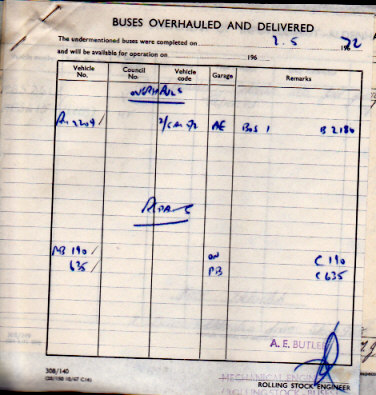 BUSES OVERHAULED AND DELIVERED
The undermentioned buses were completed on 2.5 1962 72
and will be available for operation on 196
Vehicle No. Council No. Vehicle code Garage Remarks
OVERHAULS
AE BOS 1 B 2180
REPAINTS
MB 190 / ON C 190
635 / PB C 635
A. E. BUTLER
308/140
MECHANICAL ENGINEER
ROLLING STOCK ENGINEER
(ROLLING STOCK, BUSES)